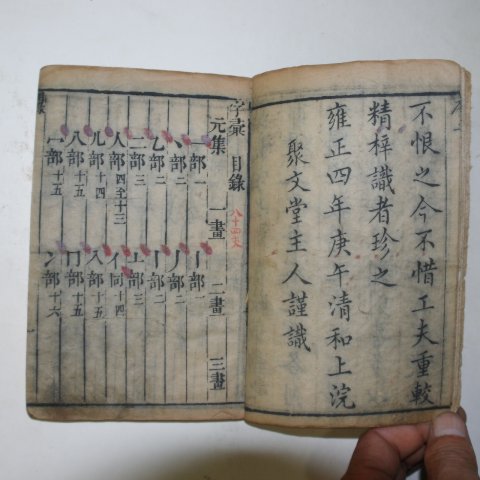 不恨之今不惜工夫重較
精梓識者珍之
雍正四年庚午清和上浣
聚文堂主人謹識
字彙 目錄
元集 一畫 二畫 三畫
一部一 丨部一
丶部二 丿部二
乙部二 亅部二
二部三 亠部三
人部四至十三 亻同四
儿部十四 入部十五
八部十五 冂部十五
冖部十五 冫部十六